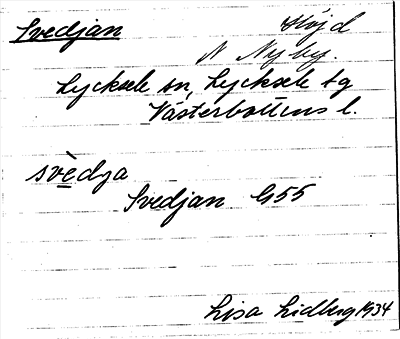 Svedjan Höjd
N Nyby.
Lycksele sn, Lycksele lg
Västerbottens l.
svèdja
Svedjan G55
Lisa Lidberg 1934